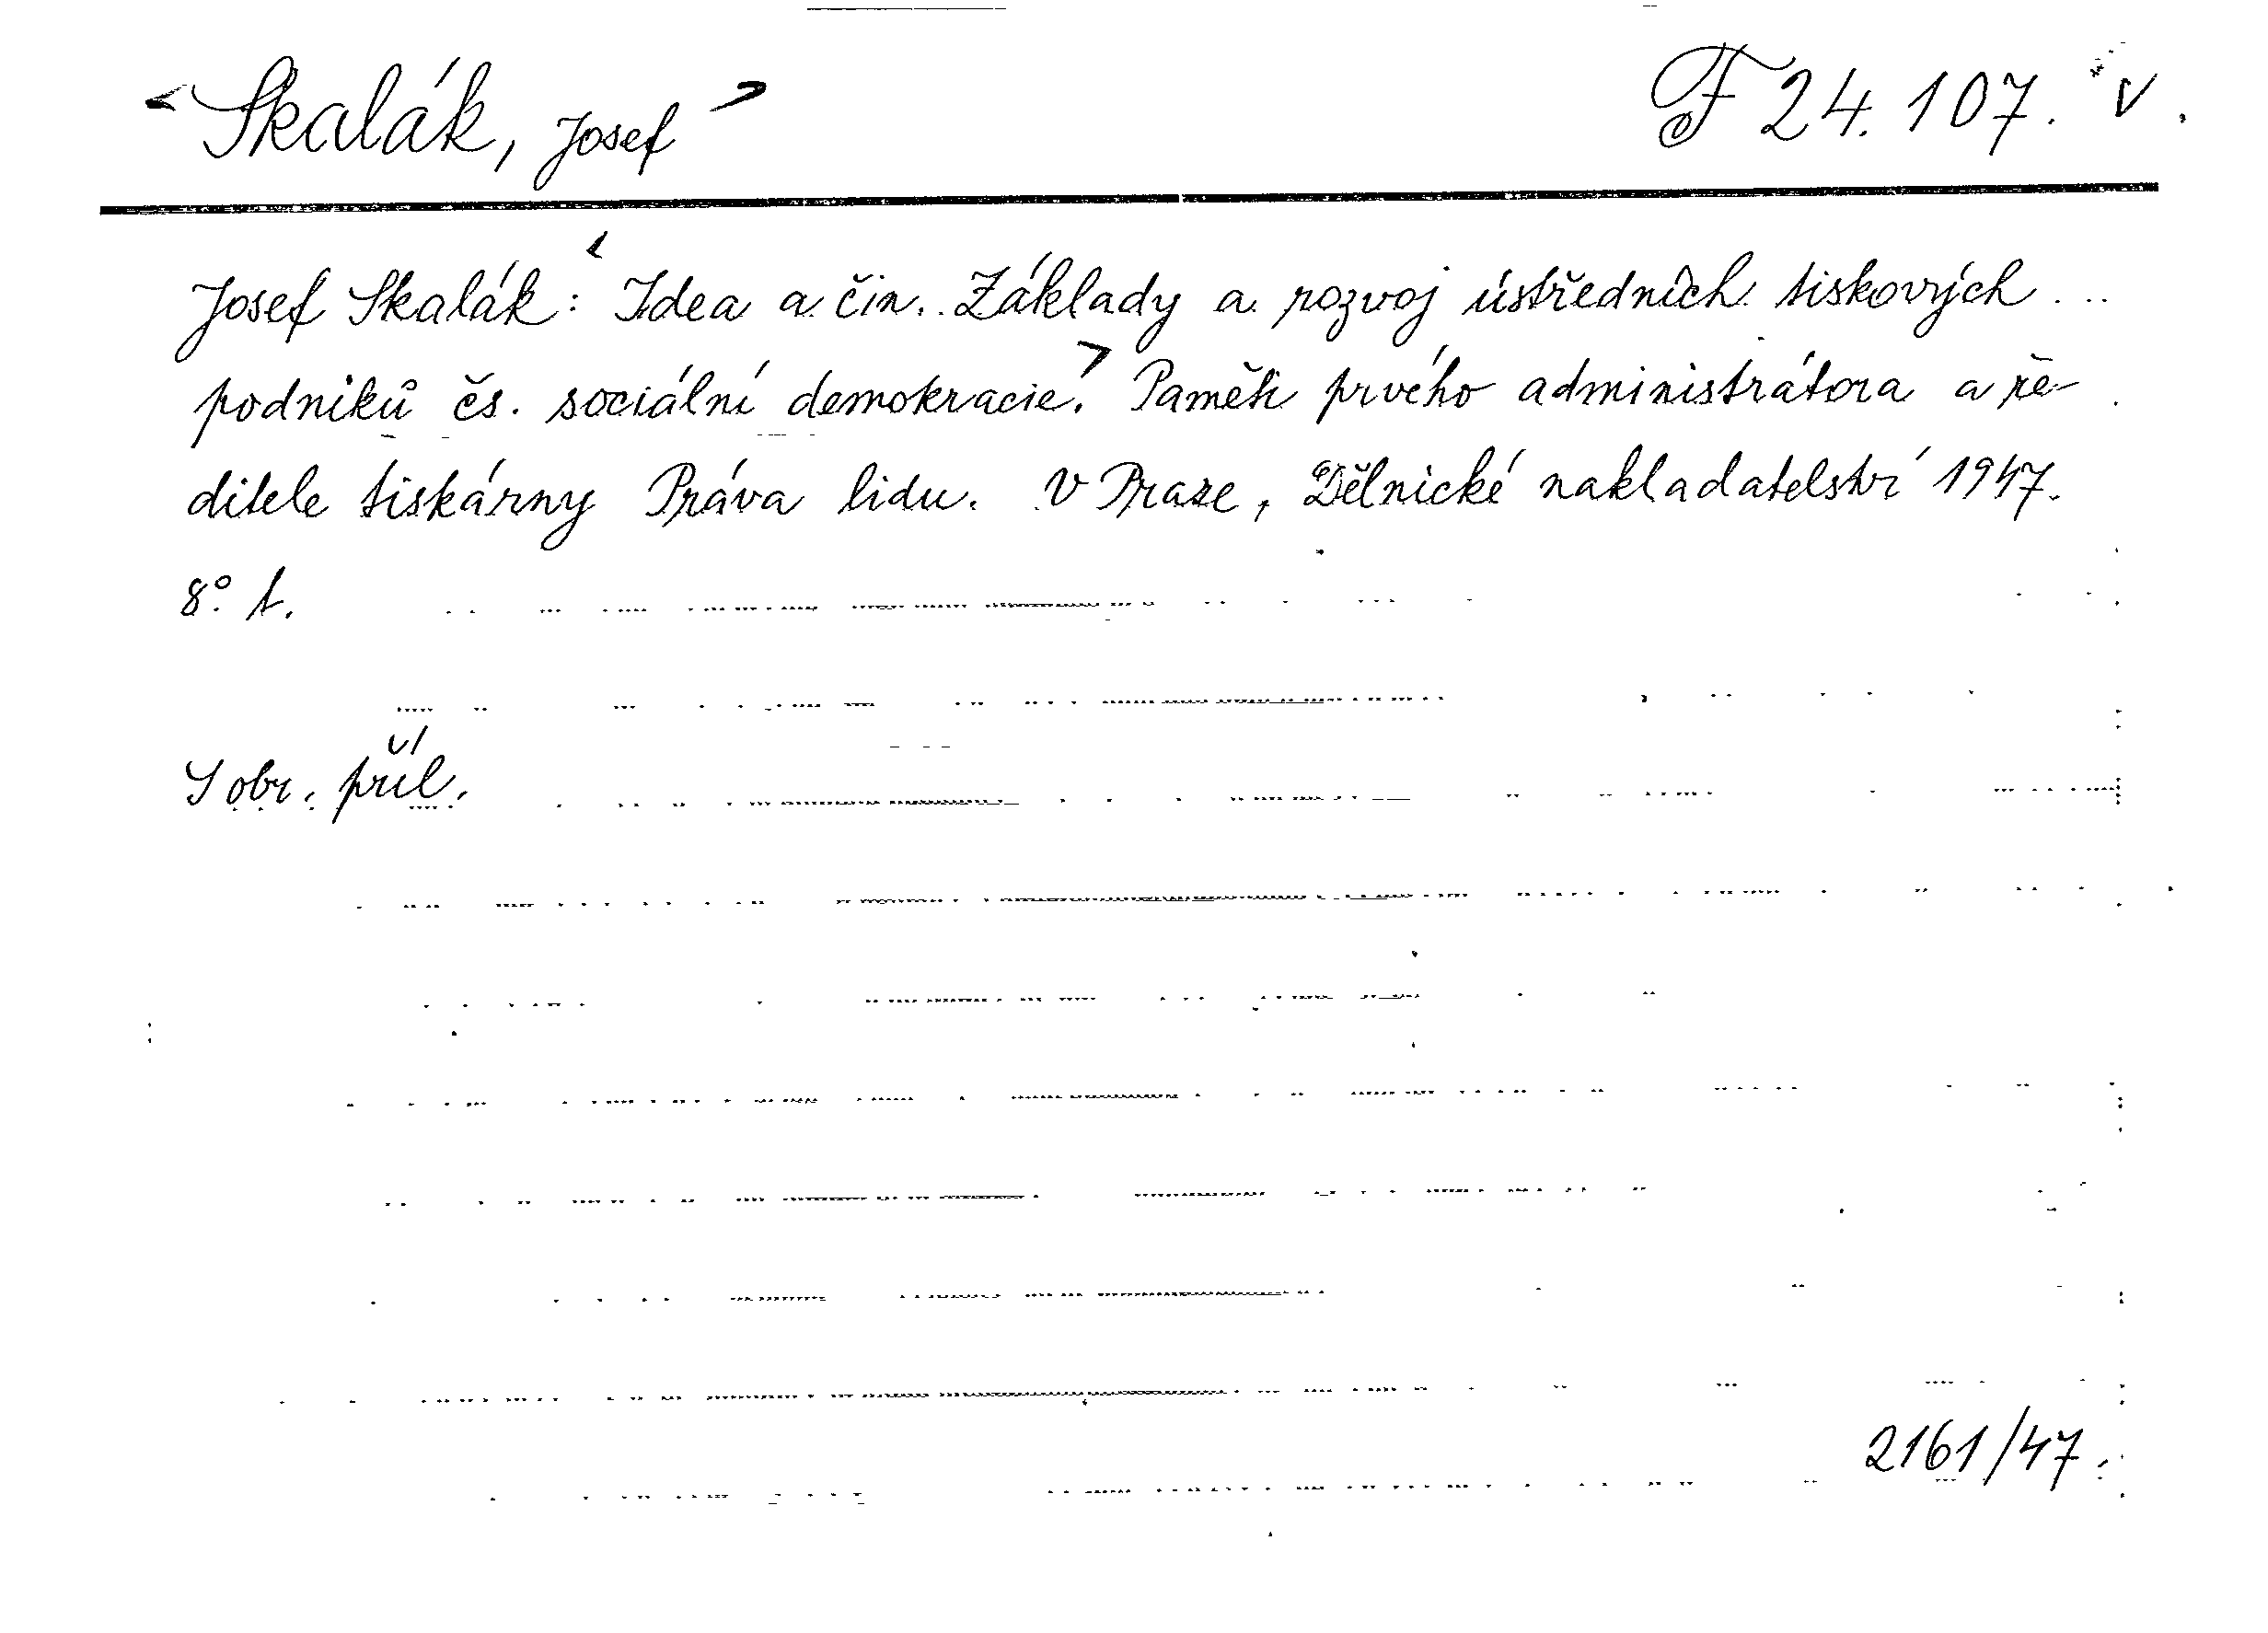 < Skalák, Josef > F 24.107. v.
Josef Skalák: < Idea a čin. Základy a rozvoj ústředních tiskových
podniků čs. sociální demokracie. > Paměti prvého administrátora a ře-
ditele tiskárny Práva lidu. V Praze, Dělnické nakladatelství 1947.
8°. t.
S obr. příl.
2161/47.